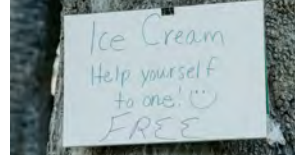 Ice Cream
Help yourself
to one! ☺
FREE